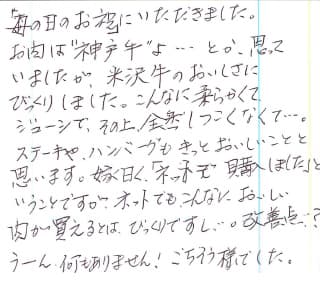 「母の日のお祝」にいただきました。
お肉は"神戸牛"よ…とか、思って
いましたが、米沢牛のおいしさに
びっくりしました。こんなに柔らかくて
ジューシで、その上、全然しつこくなくて…。
ステーキや、ハンバーグもきっとおいしいことと
思います。嫁曰く、「ネットで購入しました」と
いうことですが、ネットでも、こんなにおいしい
肉が買えるとは、びっくりですし…。改善点…?
うーん、何もありません! ごちそう様でした。